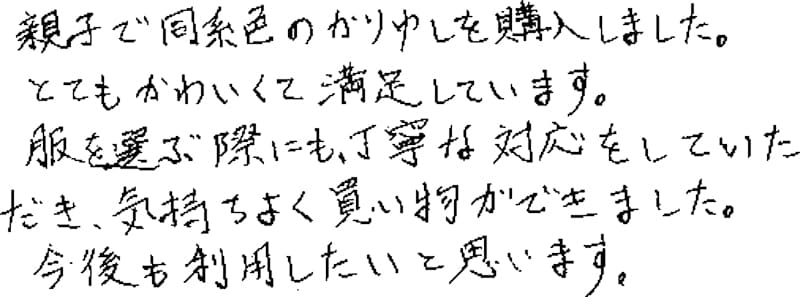 親子で同系色のかりゆしを購入しました。
とてもかわいくて満足しています。
服を選ぶ際にも、丁寧な対応をしていた
だき、気持ちよく買い物ができました。
今後も利用したいと思います。